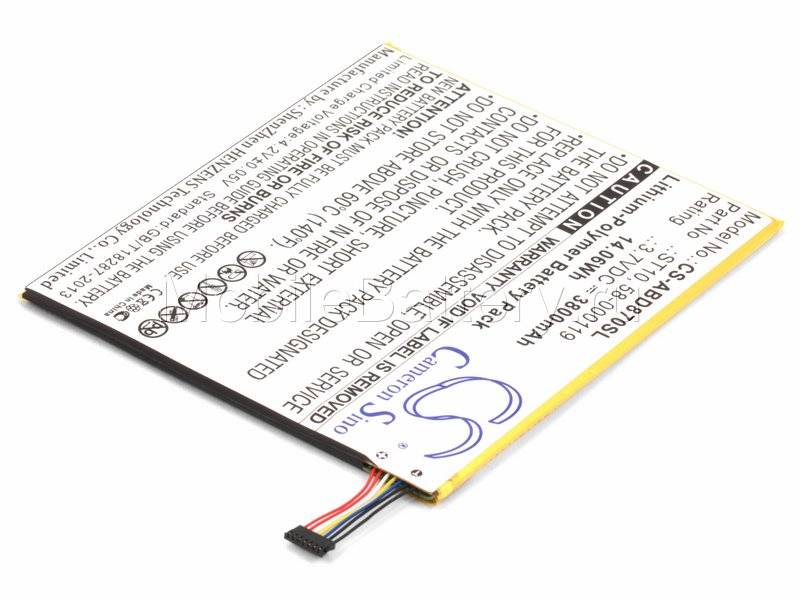 Model No.: CS-ABD870SL
Part No. : ST10, 58-000119
Rating : 3.7VDC 3800mAh
14.06Wh
Lithium-Polymer Battery Pack
CAUTION WARRANTY VOID IF LABEL IS REMOVED
•THE BATTERY PACK
•DO NOT ATTEMPT TO DISASSEMBLE OR SERVICE
•REPLACE ONLY WITH THE BATTERY PACK DESIGNATED
FOR THIS PRODUCT.
•DO NOT CRUSH, PUNCTURE, SHORT EXTERNAL
CONTACTS OR DISPOSE OF IN FIRE OR WATER
•DO NOT STORE ABOVE 60°C (140°F).
ATTENTION:
NEW BATTERY PACK MUST BE FULLY CHARGED BEFORE USE
TO REDUCE RISK OF FIRE OR BURNS
READ INSTRUCTIONS IN OPERATING GUIDE BEFORE USING THE BATTERY.
Limited Charge Voltage:4.2V±0.05V Standard:GB/T18287-2013
Manufacture by:ShenZhen HENZENS Technology Co., Limited
Made in China
CS
Cameron Sino
®
MobileBattery.ru